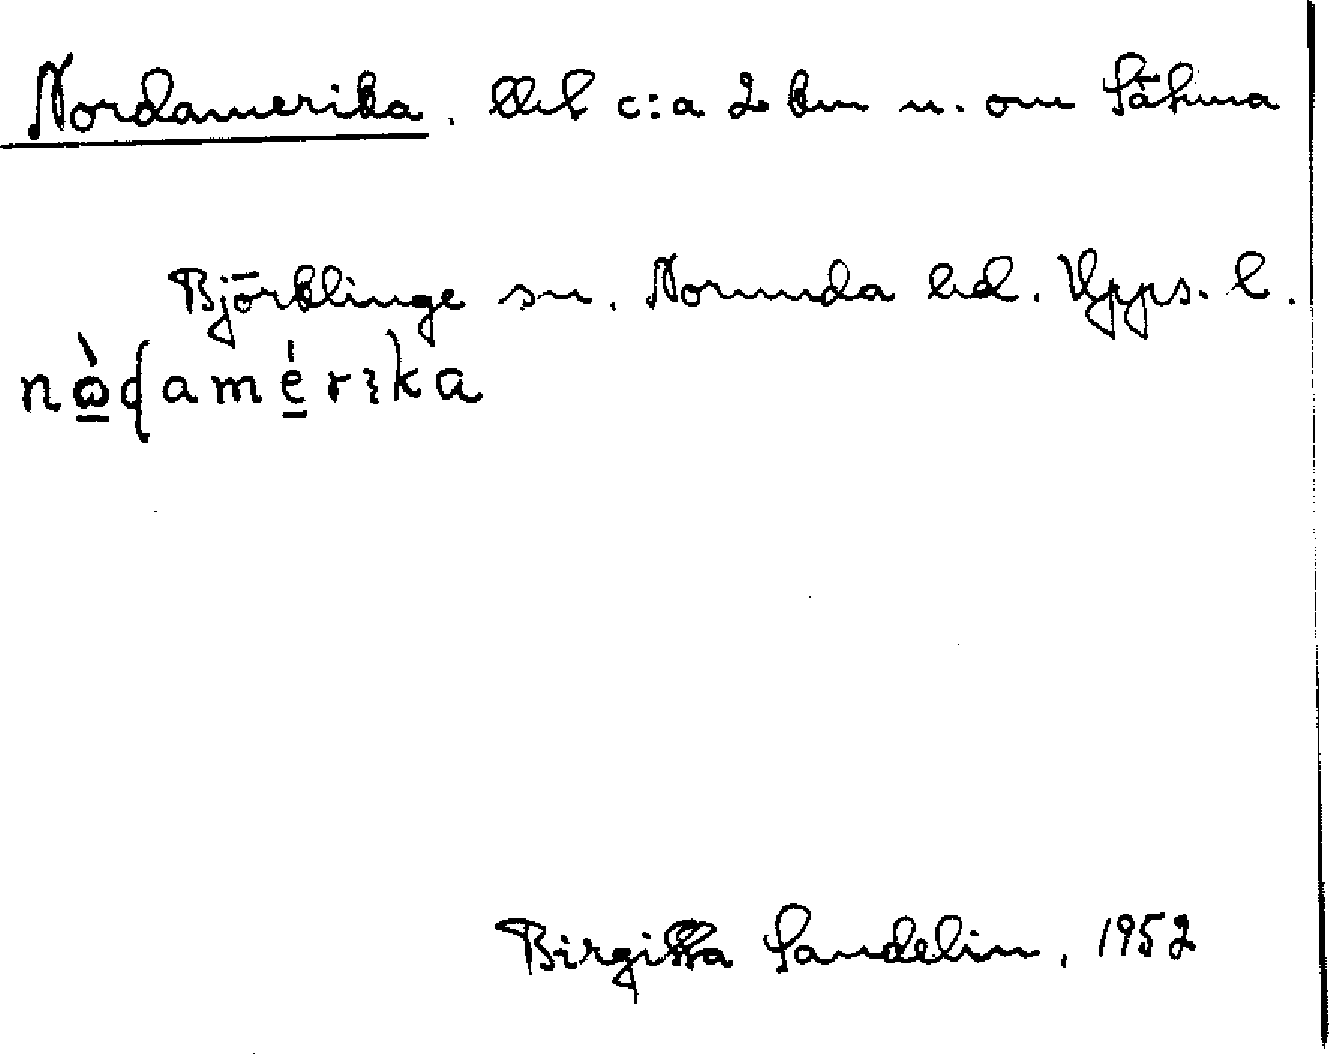 Nordamerika. Del c:a 2 km n. om Sätuna
Björklinge sn. Norunda hd. Upps. l.
nò̱ḍamé̱rika
Birgitta Sandelin, 1952